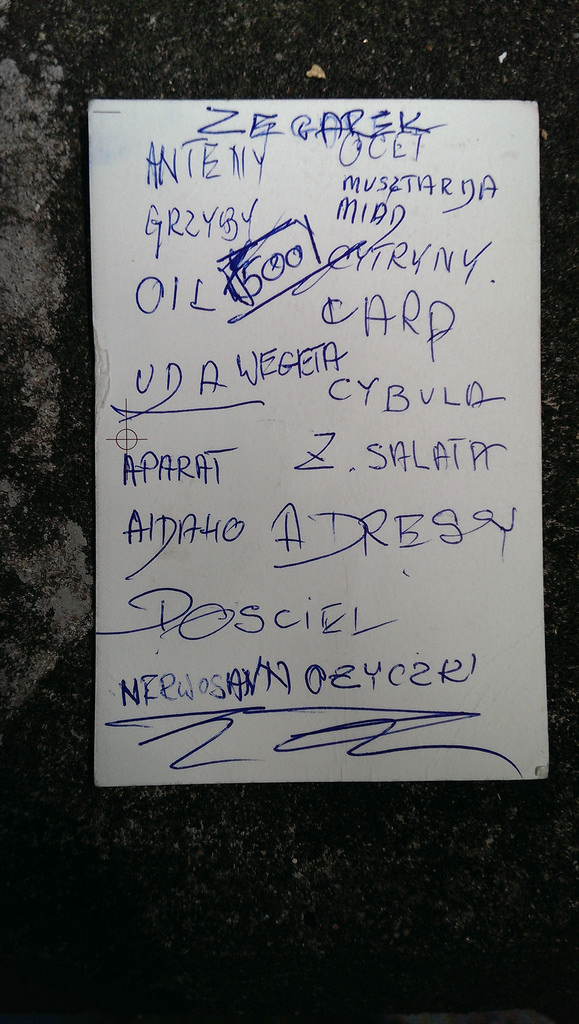 ZEGAREK
ANTENY OCET
MUSZTARDA
GRZYBY MIAD
OIL 500 CYTRYNY.
CARP
UDA WEGETA
CYBULA
APARAT Z. SALATA
AIDAHO ADRESSY
POSCIEL
NERWOSANN OZYCZKI